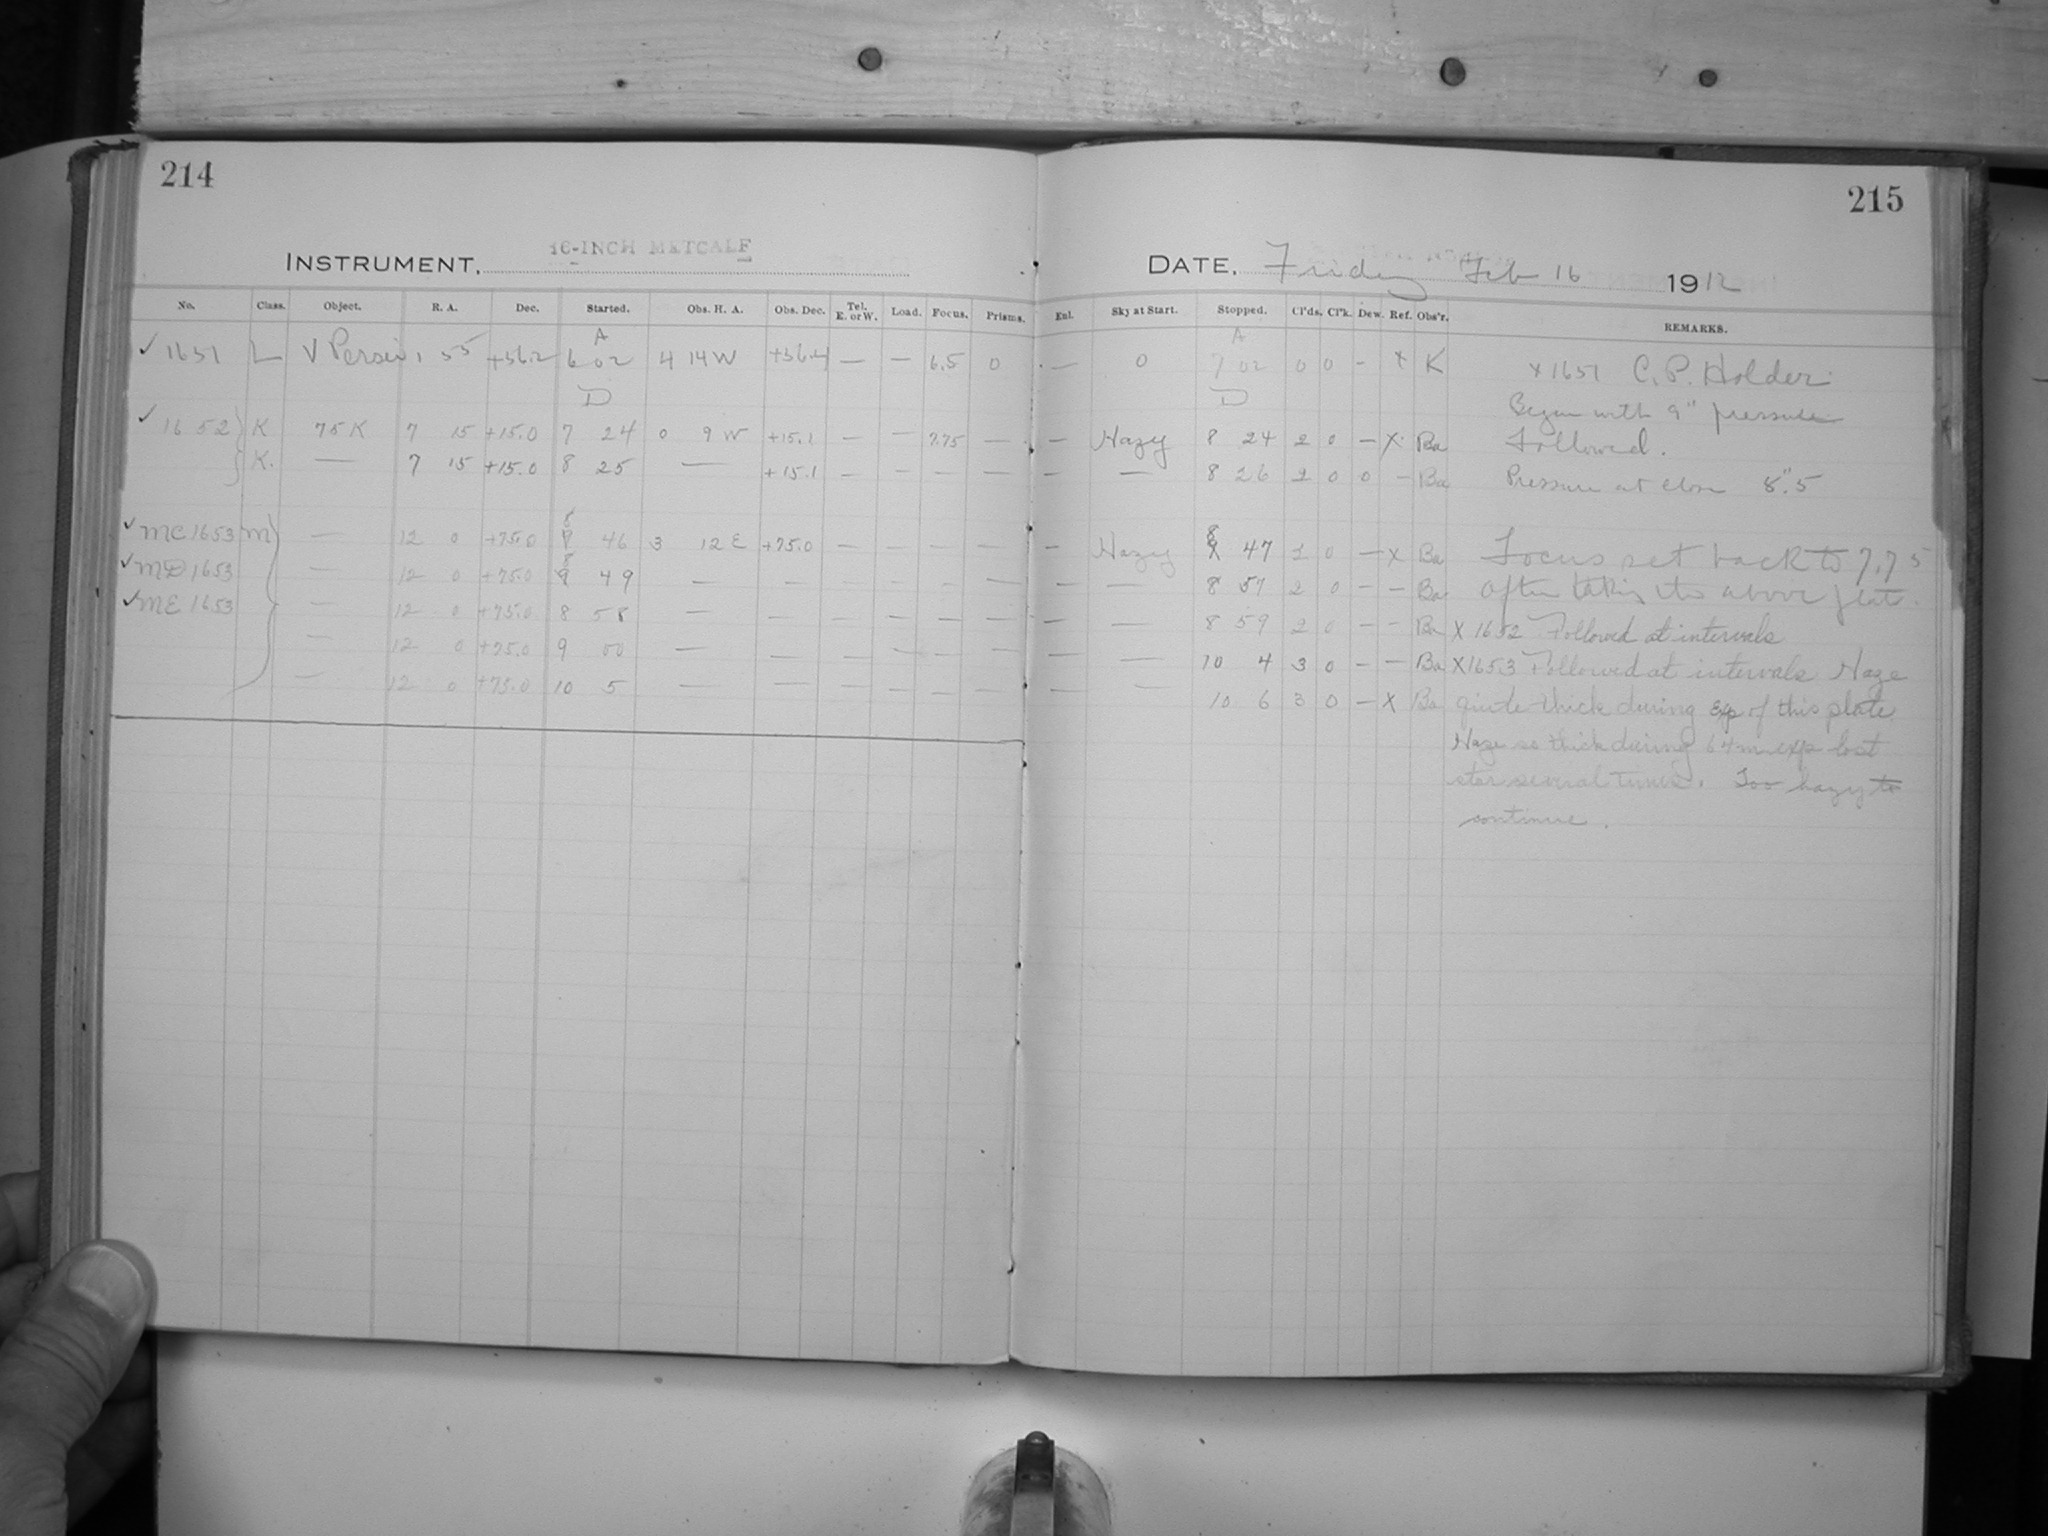 214
INSTRUMENT, 16-INCH METCALF
No. Class. Object. R. A. Dec. Started. Obs. H. A. Obs. Dec. Tel. E. or W. Load. Focus. Prisms.
A
✓ 1651 L V Persei 1 55 +56.2 6 02 4 14 W +56.4 — — 6.5 0
D
✓ 1652 K 75K 7 15 +15.0 7 24 0 9 W +15.1 — — 7.75 —
K. — 7 15 +15.0 8 25 — +15.1 — — — —
✓ MC 1653 M — 12 0 +75.0 8 46 3 12 E +75.0 — — — —
✓ MD 1653 — 12 0 +75.0 8 49 — — — — — —
✓ ME 1653 — 12 0 +75.0 8 58 — — — — — —
— 12 0 +75.0 9 00 — — — — — —
— 12 0 +75.0 10 5 — — — — — —
215
DATE, Friday Feb 16 1912
Enl. Sky at Start. Stopped. Cl'ds. Cl'k. Dew. Ref. Obs'r. REMARKS.
A
— 0 7 02 0 0 - x K x 1651 C. P. Holder
D
Began with 9" pressure
— Hazy 8 24 2 0 — X Ba Followed.
— — 8 26 2 0 0 - Ba Pressure at close 8".5
— Hazy 8 47 1 0 — x Ba Focus set back to 7.75
— — 8 57 2 0 - - Ba after taking the above plate.
— — 8 59 2 0 - - Ba X 1652 Followed at intervals
— — 10 4 3 0 - - Ba X 1653 Followed at intervals Haze
— — 10 6 3 0 — X Ba quite thick during exp of this plate
Haze so thick during 64m exp lost
star several times. Too hazy to
continue.